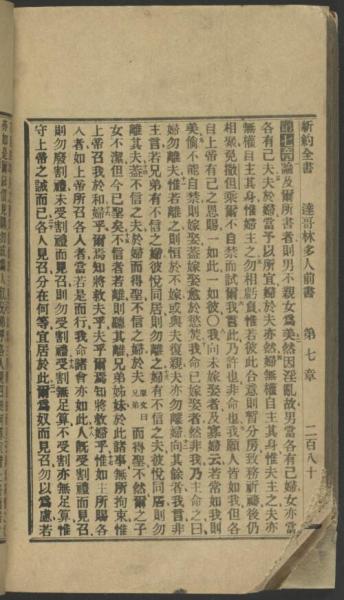 新約全書　達哥林多人前書　第七章　二百八十
第七章論及爾所書者則男不親女爲美然因淫亂故男當各有己婦女亦當
各有己夫夫於婦當予以所宜婦於夫亦然婦無權自主其身惟夫主之夫亦
無權自主其身惟婦主之勿相虧負惟若彼此合意則暫分房致務祈禱後仍
相聚免撒但乘爾不自禁而試爾我言此乃許也非命也我願人皆如我但各
自上帝有己之恩賜一如此一如彼〇我向未嫁娶者及嫠婦云若常如我則
美倘不能自禁則嫁娶蓋嫁娶愈於慾焚我命已嫁娶者然非我乃主命之曰
婦勿離夫惟若離之則恒於不嫁或與夫復親夫亦勿離婦向其餘者我言非
主言若兄弟有不信之婦彼悅同居則勿離之婦有不信之夫彼悅同居則勿
離其夫蓋不信之夫於婦而得聖不信之婦於夫原文曰兄弟而得聖不然爾之子
女不潔但今已聖矣不信者若離則聽其離兄弟姊妹於此諸事無所拘束惟
上帝召我於和婦乎爾焉知將救夫乎夫乎爾焉知將救婦乎惟如主所賜各
人者如上帝所召各人者當若是而行我命諸會亦如此人旣受割禮而見召
則勿廢割禮未受割禮而見召則勿受割禮受割無足算不受割亦無足算惟
守上帝之誡而已各人見召分在何等宜居於此爾爲奴而見召勿以爲慮若